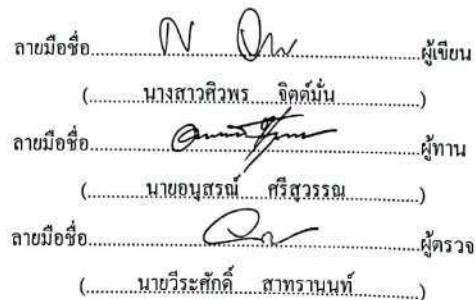 ลายมือชื่อ........................................ผู้เขียน
(......นางสาวศิวพร....จิตต์มั่น..............)
ลายมือชื่อ........................................ผู้ทาน
(......นายอนุสรณ์....ศรีสุวรรณ..............)
ลายมือชื่อ........................................ผู้ตรวจ
(......นายวีระศักดิ์....สาทรานนท์............)